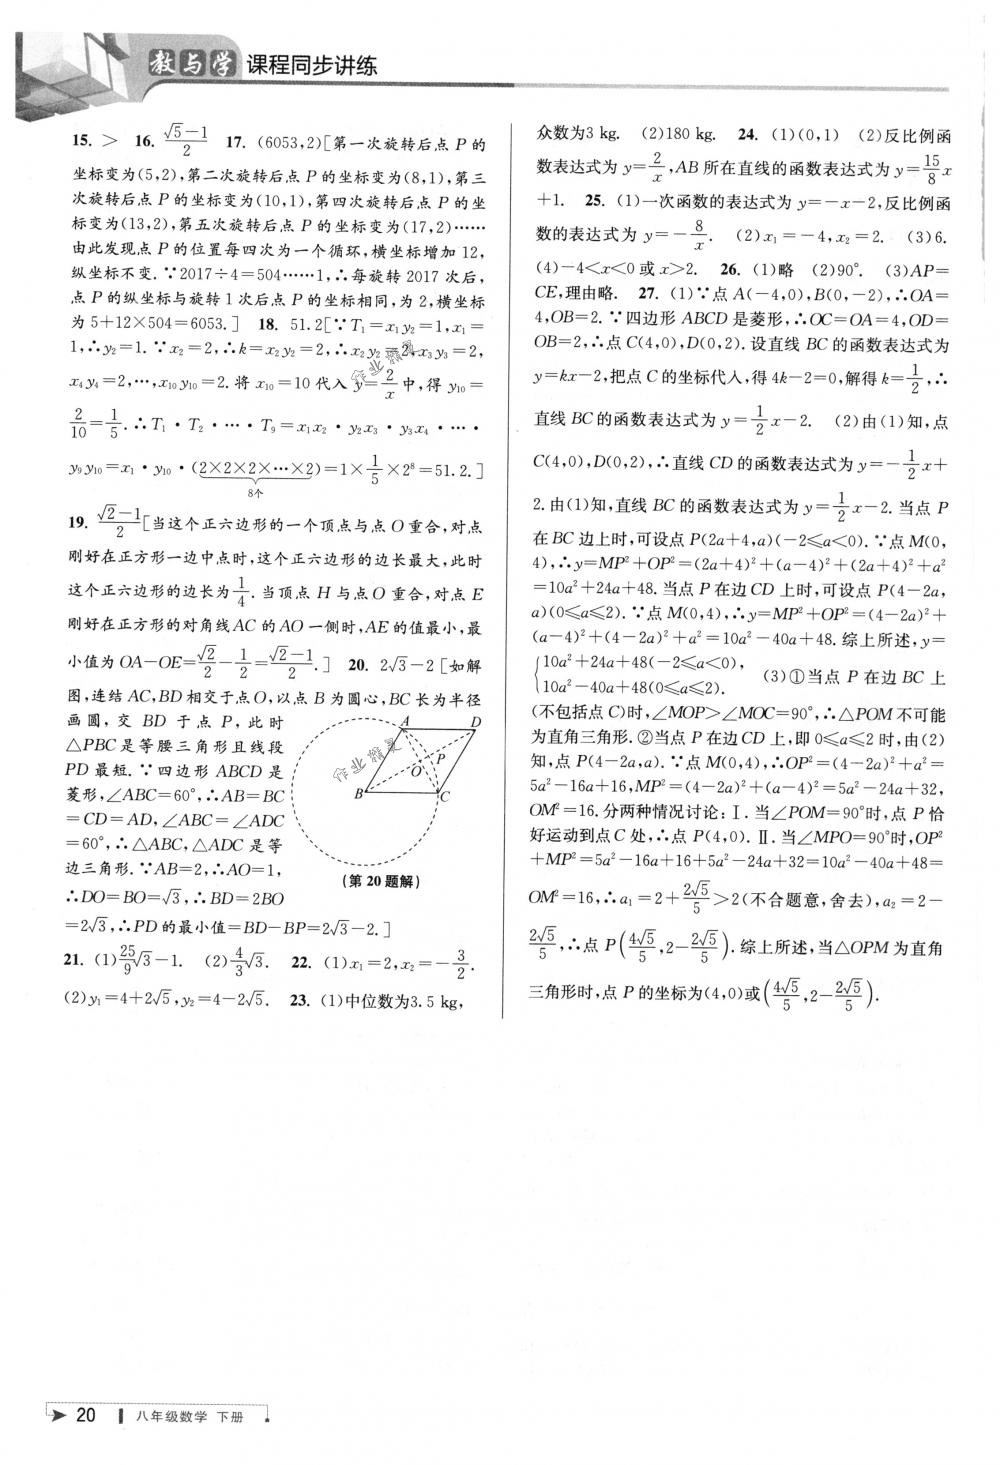 教与学 课程同步讲练
15. > 16. (√5−1)/2 17. (6053,2)[第一次旋转后点 P 的
坐标变为(5,2),第二次旋转后点 P 的坐标变为(8,1),第三
次旋转后点 P 的坐标变为(10,1),第四次旋转后点 P 的坐
标变为(13,2),第五次旋转后点 P 的坐标变为(17,2)……
由此发现点 P 的位置每四次为一个循环,横坐标增加 12,
纵坐标不变.∵2017÷4=504……1,∴每旋转 2017 次后,
点 P 的纵坐标与旋转 1 次后点 P 的坐标相同,为 2,横坐标
为 5+12×504=6053.] 18. 51.2[∵T₁=x₁y₂=1,x₁=
1,∴y₂=1.∵x₂=2,∴k=x₂y₂=2,∴x₂y₂=2,x₃y₃=2,
x₄y₄=2,…,x₁₀y₁₀=2.将 x₁₀=10 代入 y=2/x 中,得 y₁₀=
2/10=1/5.∴T₁·T₂·…·T₉=x₁x₂·y₂x₃·y₃x₄·…·
y₉y₁₀=x₁·y₁₀·(2×2×2×…×2)=1×1/5×2⁸=51.2.]
8个
19. (√2−1)/2[当这个正六边形的一个顶点与点 O 重合,对点
刚好在正方形一边中点时,这个正六边形的边长最大,此时
这个正六边形的边长为1/4.当顶点 H 与点 O 重合,对点 E
刚好在正方形的对角线 AC 的 AO 一侧时,AE 的值最小,最
小值为 OA−OE=√2/2−1/2=(√2−1)/2.] 20. 2√3−2[如解
图,连结 AC,BD 相交于点 O,以点 B 为圆心,BC 长为半径
画圆,交 BD 于点 P,此时
△PBC 是等腰三角形且线段
PD 最短.∵四边形 ABCD 是
菱形,∠ABC=60°,∴AB=BC
=CD=AD,∠ABC=∠ADC
=60°,∴△ABC,△ADC 是等
边三角形.∵AB=2,∴AO=1,
∴DO=BO=√3,∴BD=2BO
=2√3,∴PD 的最小值=BD−BP=2√3−2.]
A D
O P
B C
(第 20 题解)
21. (1)25/9√3−1. (2)4/3√3. 22. (1)x₁=2,x₂=−3/2.
(2)y₁=4+2√5,y₂=4−2√5. 23. (1)中位数为3.5 kg,
众数为3 kg. (2)180 kg. 24. (1)(0,1) (2)反比例函
数表达式为 y=2/x,AB 所在直线的函数表达式为 y=15/8x
+1. 25. (1)一次函数的表达式为 y=−x−2,反比例函
数的表达式为 y=−8/x. (2)x₁=−4,x₂=2. (3)6.
(4)−4<x<0 或 x>2. 26. (1)略 (2)90°. (3)AP=
CE,理由略. 27. (1)∵点 A(−4,0),B(0,−2),∴OA=
4,OB=2.∵四边形 ABCD 是菱形,∴OC=OA=4,OD=
OB=2,∴点 C(4,0),D(0,2).设直线 BC 的函数表达式为
y=kx−2,把点 C 的坐标代入,得 4k−2=0,解得 k=1/2,∴
直线 BC 的函数表达式为 y=1/2x−2. (2)由(1)知,点
C(4,0),D(0,2),∴直线 CD 的函数表达式为 y=−1/2x+
2.由(1)知,直线 BC 的函数表达式为 y=1/2x−2.当点 P
在 BC 边上时,可设点 P(2a+4,a)(−2≤a<0).∵点 M(0,
4),∴y=MP²+OP²=(2a+4)²+(a−4)²+(2a+4)²+a²
=10a²+24a+48.当点 P 在边 CD 上时,可设点 P(4−2a,
a)(0≤a≤2).∵点 M(0,4),∴y=MP²+OP²=(4−2a)²+
(a−4)²+(4−2a)²+a²=10a²−40a+48.综上所述,y=
{10a²+24a+48(−2≤a<0),
10a²−40a+48(0≤a≤2). (3)①当点 P 在边 BC 上
(不包括点 C)时,∠MOP>∠MOC=90°,∴△POM 不可能
为直角三角形.②当点 P 在边 CD 上,即 0≤a≤2 时,由(2)
知,点 P(4−2a,a).∵点 M(0,4),∴OP²=(4−2a)²+a²=
5a²−16a+16,MP²=(4−2a)²+(a−4)²=5a²−24a+32,
OM²=16.分两种情况讨论:Ⅰ.当∠POM=90°时,点 P 恰
好运动到点 C 处,∴点 P(4,0).Ⅱ.当∠MPO=90°时,OP²
+MP²=5a²−16a+16+5a²−24a+32=10a²−40a+48=
OM²=16,∴a₁=2+2√5/5>2(不合题意,舍去),a₂=2−
2√5/5,∴点 P(4√5/5,2−2√5/5).综上所述,当△OPM 为直角
三角形时,点 P 的坐标为(4,0)或(4√5/5,2−2√5/5).
20 八年级数学 下册